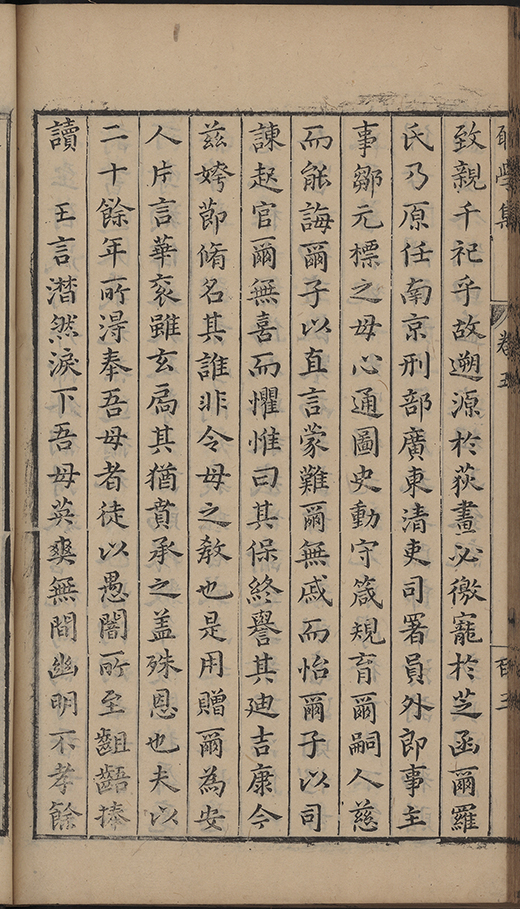 學集 卷五
致親千祀乎故遡源於荻畫必徼寵於芝函爾羅
氏乃原任南京刑部廣東清吏司署員外郎事主
事鄒元標之母心通圖史動守箴規育爾嗣人慈
而能誨爾子以直言蒙難爾無戚而怡爾子以司
諫起官爾無喜而懼惟曰其保終譽其廸吉康今
茲姱節脩名其誰非令母之教也是用贈爾為安
人片言華衮雖玄扃其猶賁承之盖殊恩也夫以
二十餘年所淂奉吾母者徒以愚闇所至齟齬捧
讀 王言潸然淚下吾母英爽無間幽明不孝餘